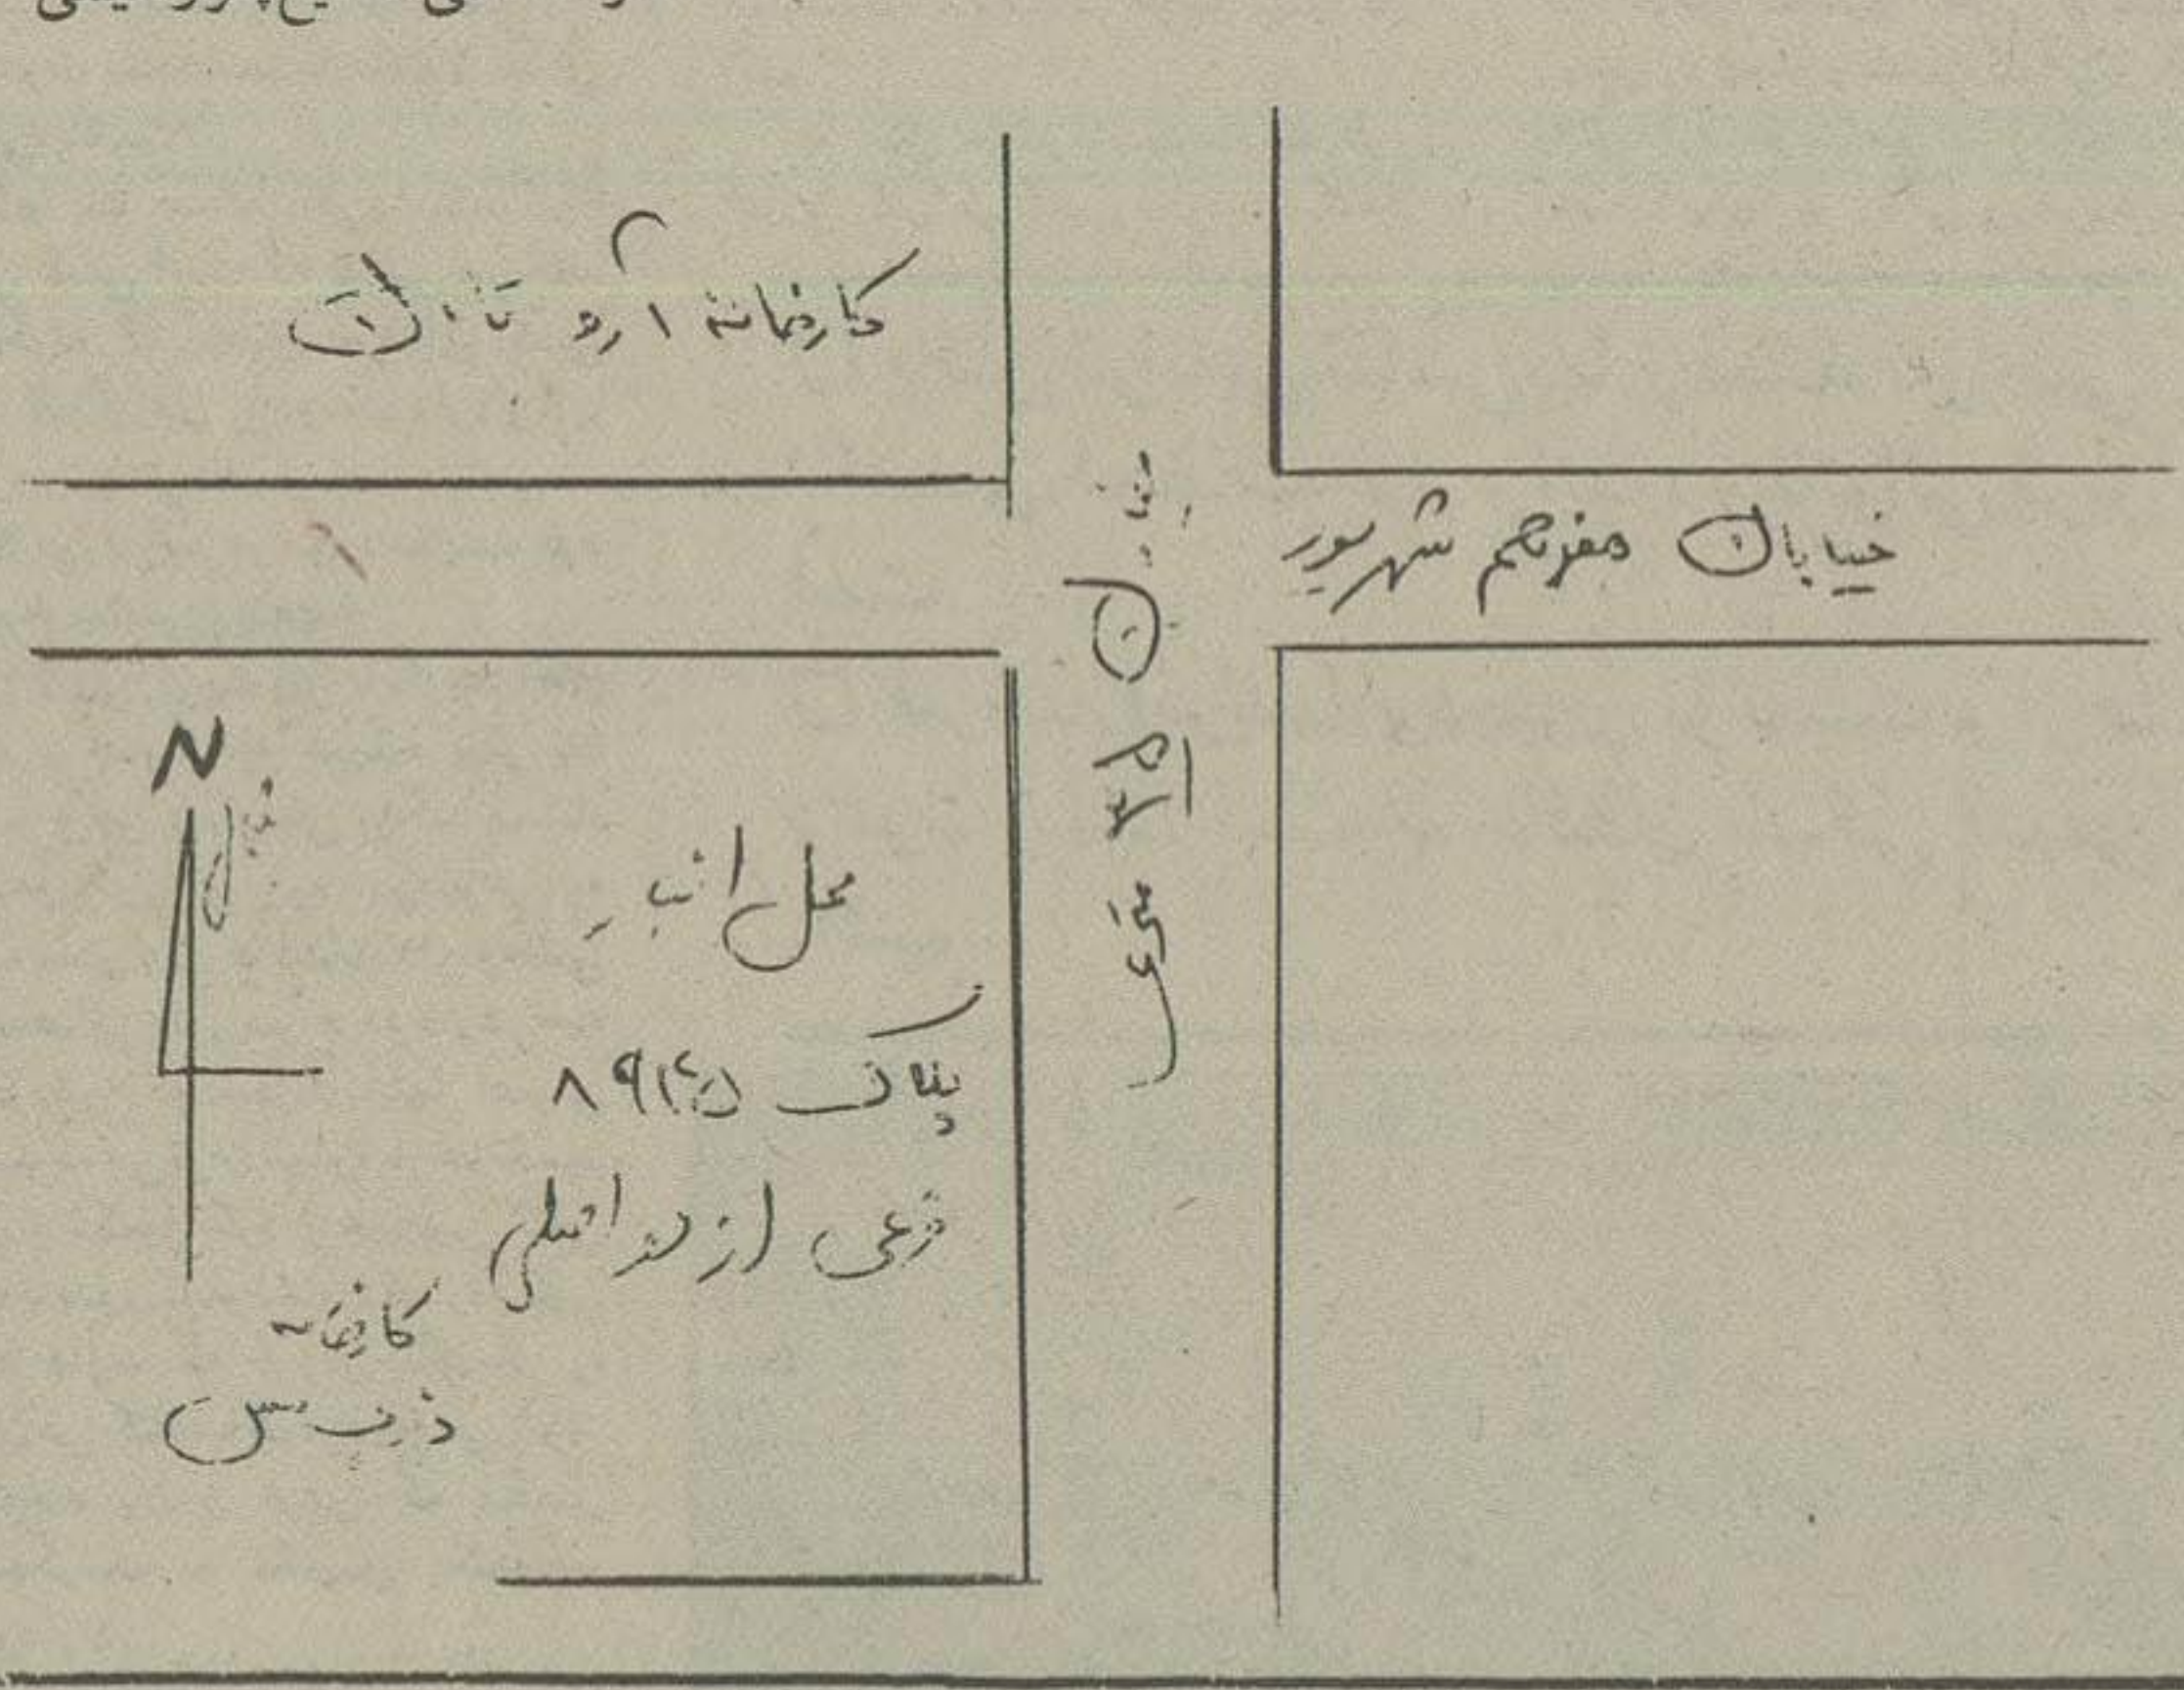 کارخانه آرد تابان
خیابان هفدهم شهریور
خیابان ۳۵ متری
N
شمال
محل انبار
پلاک ۸۹۲۵
فرعی از اصلی
کارخانه